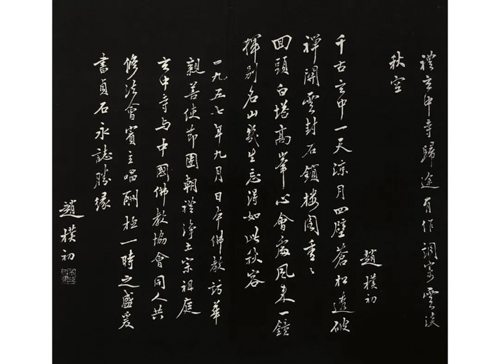 禮玄中寺歸途有作調寄雲淡
秋空
趙樸初
千古玄中一天涼月四壁蒼松透破
禪關雲封石鎖樓閣重〻
回頭白塔高峯心會處風來一鐘
揮別名山幾生忘得如此秋容
一九五七年九月日本佛教訪華
親善使節團朝禮淨土宗祖庭
玄中寺与中國佛教協會同人共
修法會賓主唱酬極一時之盛爰
書貞石永誌勝緣
趙樸初